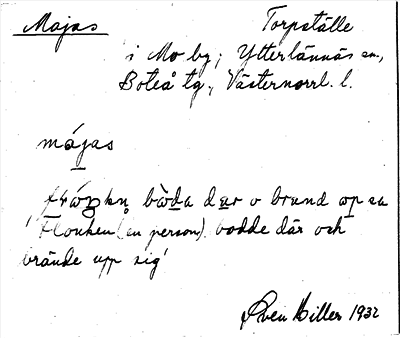 Majas Torpställe
i Mo by, Ytterlännäs sn.,
Boteå tg., Västernorrl. l.
májas
bò̀da dær o brund op sa
'Flonken (en person) bodde där och
brände upp sig'
Sven Hiller 1932